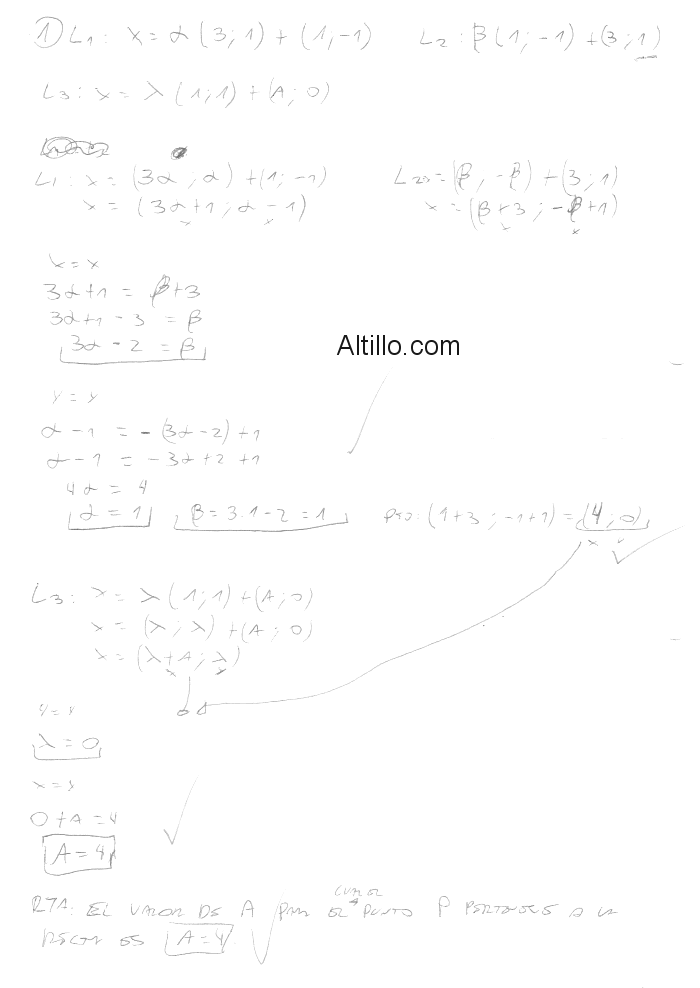 1) L1: x = α(3;1) + (1,-1) L2: β(1;-1) + (3;1)
L3: x = λ(1;1) + (A;0)
L1: x = (3α;α) + (1;-1) L2: x = (β,-β) + (3;1)
x = (3α+1;α-1) x = (β+3;-β+1)
x x x x
x = x
3α+1 = β+3
3α+1-3 = β
3α-2 = β
Altillo.com
y = y
α-1 = -(3α-2)+1
α-1 = -3α+2+1
4α = 4
α = 1 β = 3·1-2 = 1 PTO: (1+3;-1+1) = (4;0)
x y
L3: x = λ(1;1) + (A;0)
x = (λ;λ) + (A;0)
x = (λ+A;λ)
x y
y = y
λ = 0
x = x
0+A = 4
A = 4
CUAL
RTA: EL VALOR DE A PARA EL PUNTO P PERTENECE A LA
RECTA ES A=4.